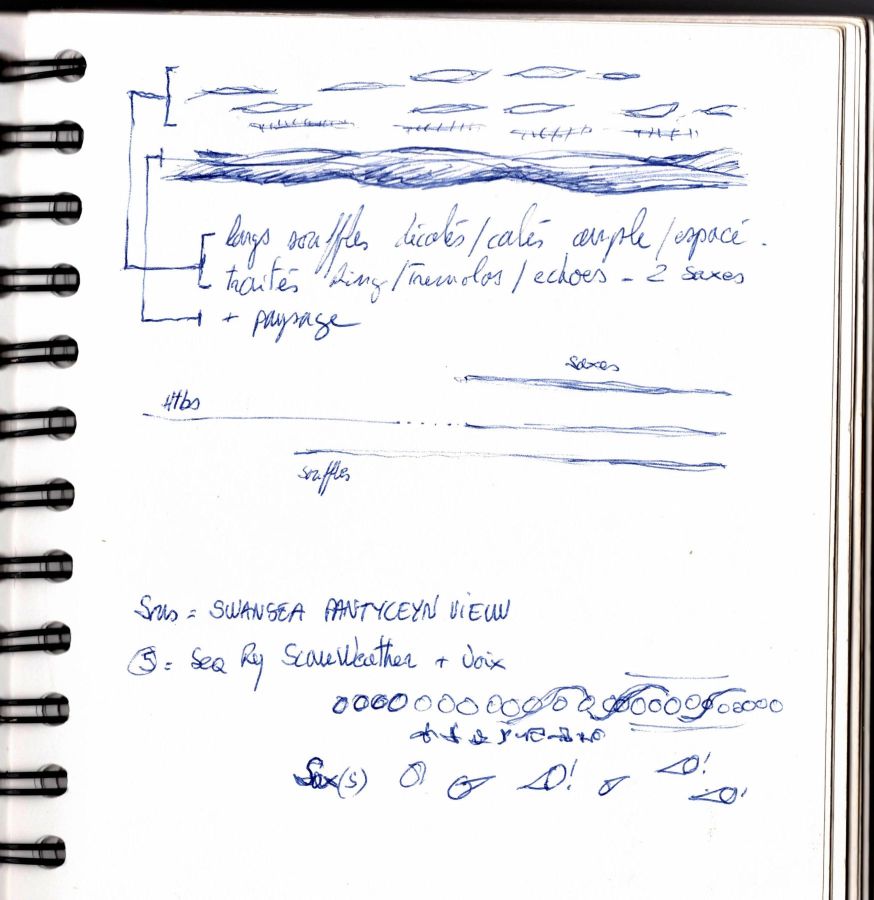 largs souffles décalés/calés ample/espacé.
traités Ring/Tremolos/echoes - 2 saxes
+ paysage
saxes
Htbs
souffles
Sons = SWANSEA PANTYCEYN VIEUW
⑤ = Sea Ry ScaleWeather + Voix
Sax(s)